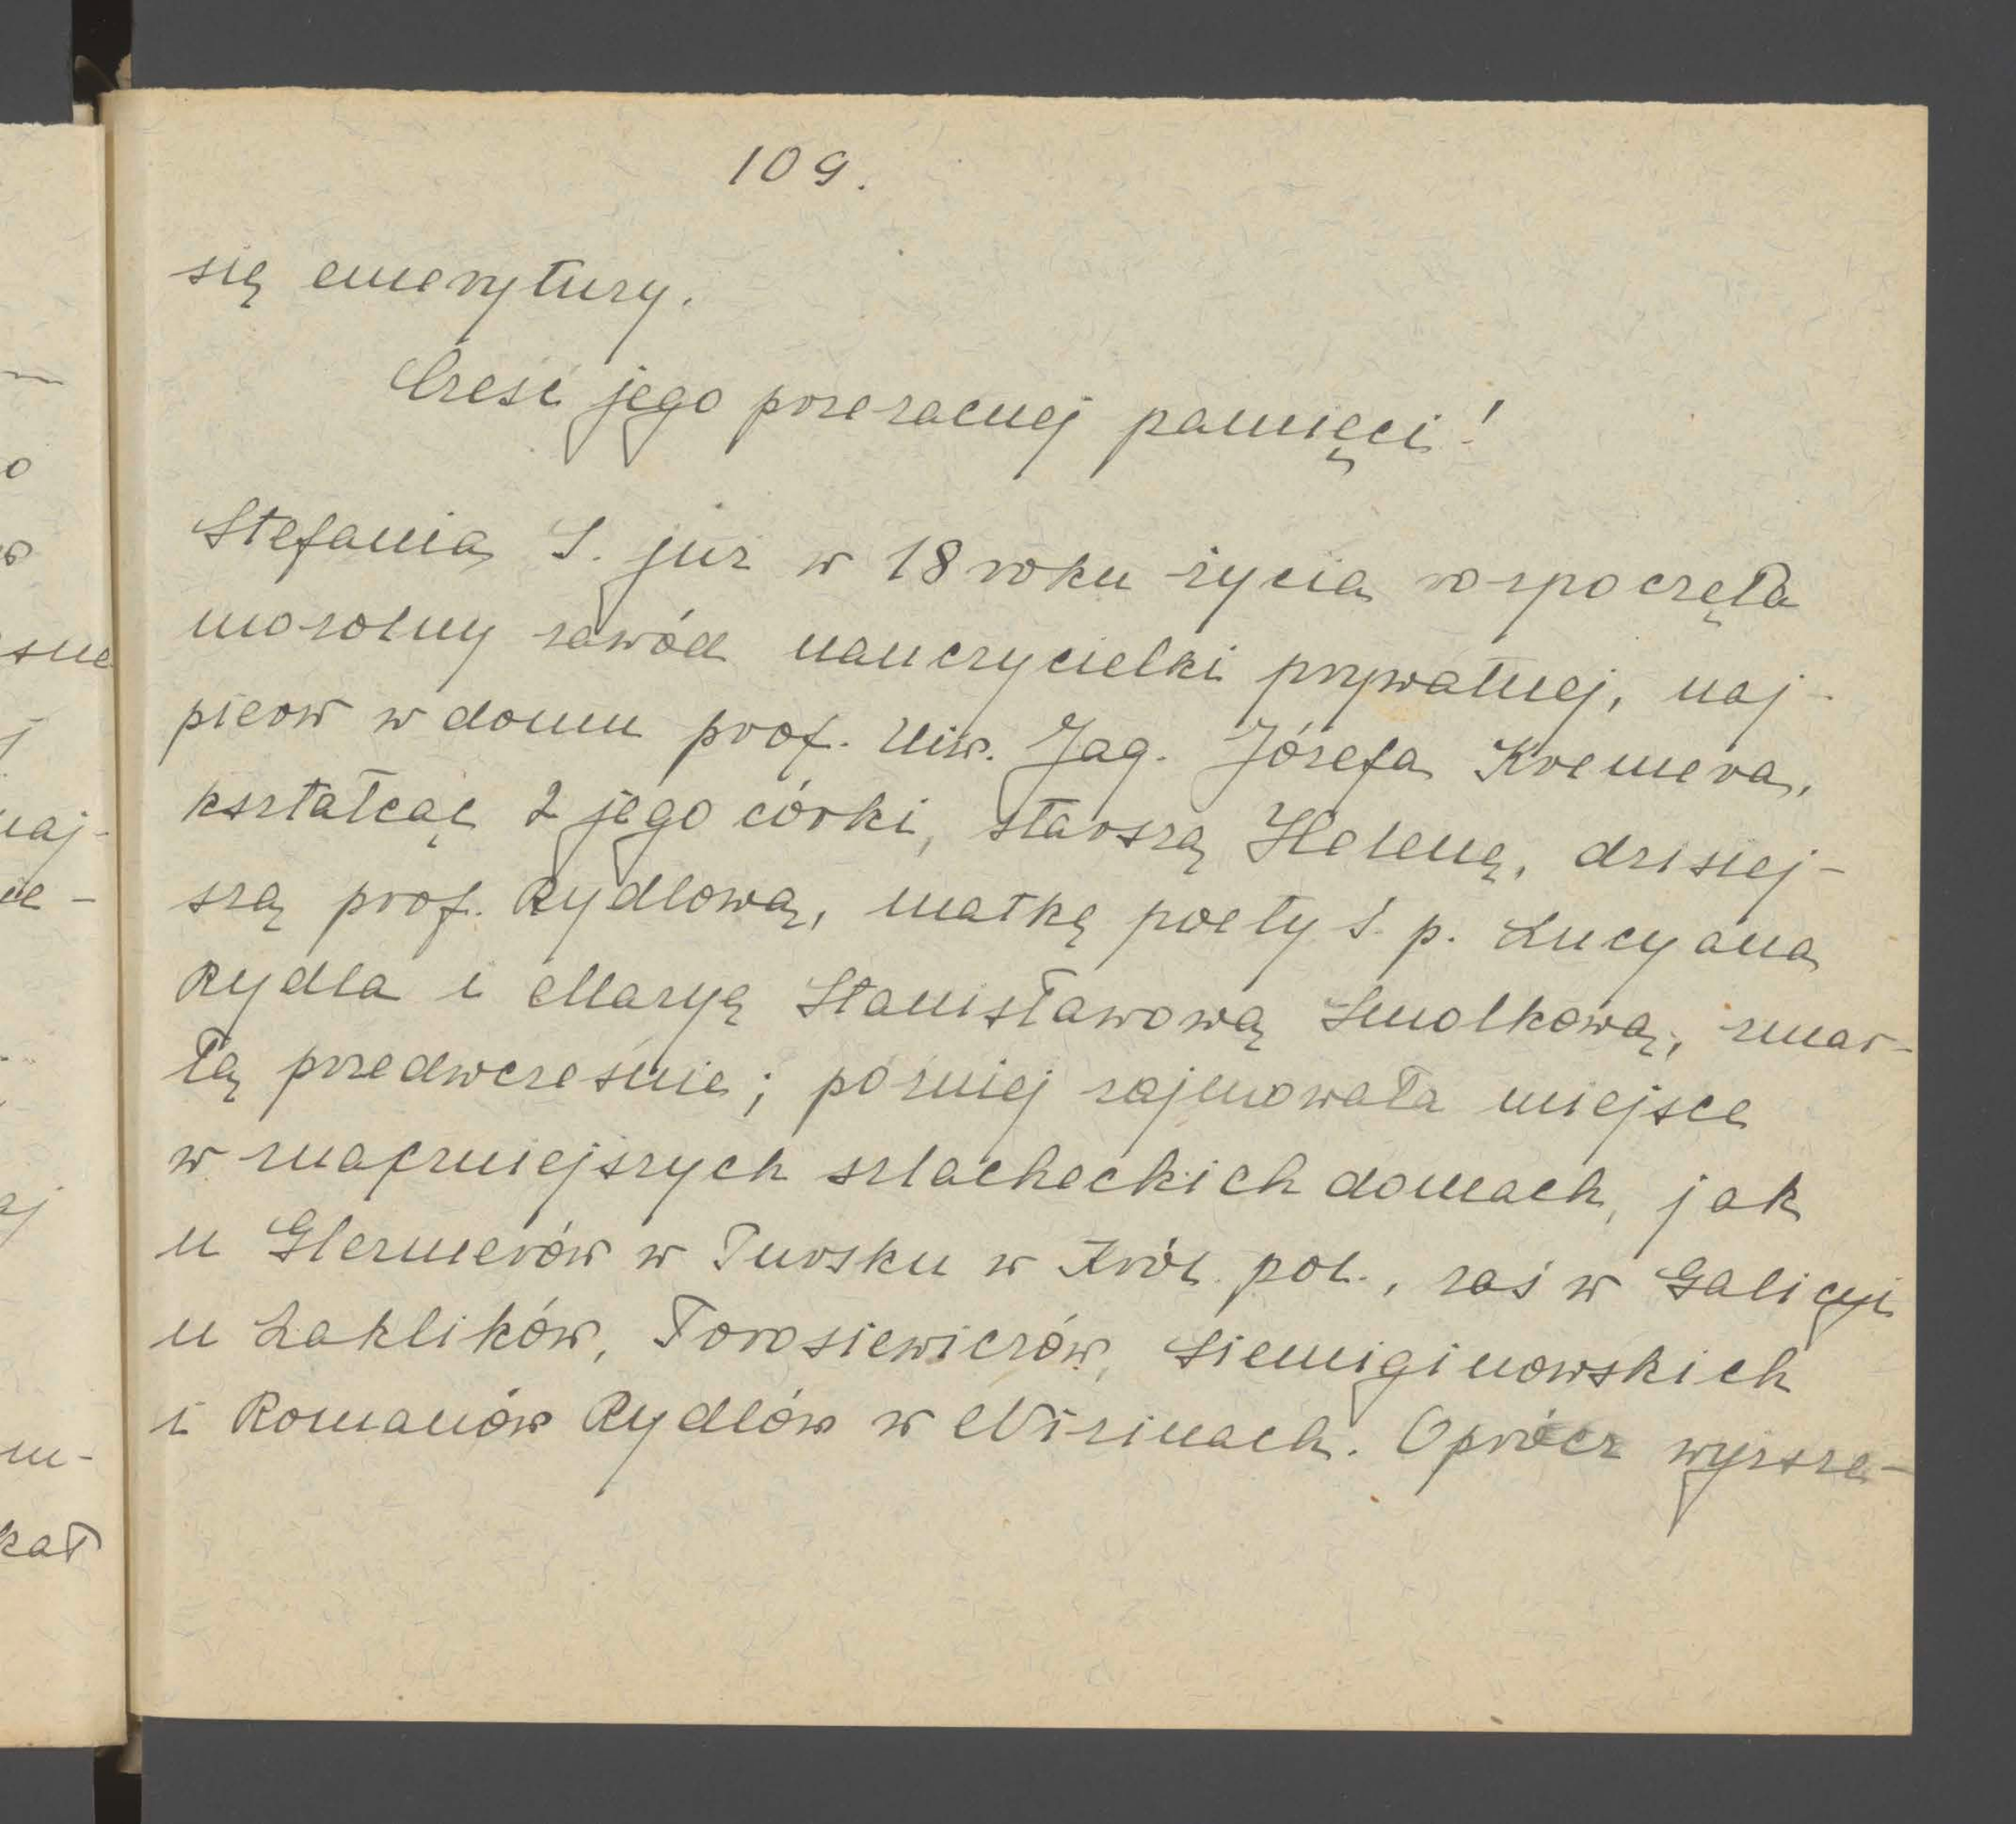 109.
się emerytury.
Cześć jego przezacnej pamięci!
Stefania S. już w 18 roku życia rozpoczęła
mozolny zawód nauczycielki prywatnej, naj-
pierw w domu prof. Uiw. Jag. Józefa Kremera,
kształcąc 2 jego córki, starszą Helenę, dzisiej-
szą prof. Rydlową, matkę poety ś. p. Lucyana
Rydla i Maryę Stanisławową Smolkową, zmar-
łą przedwcześnie; później zajmowała miejsce
w znaczniejszych szlacheckich domach, jak
u Glezmerów w Tursku w Król. pol., zaś w Galicyi
u Łaklików, Torosiewiczów, Siemiginowskich
i Romanów Rydlów w Nizinach. Oprócz wyższe-